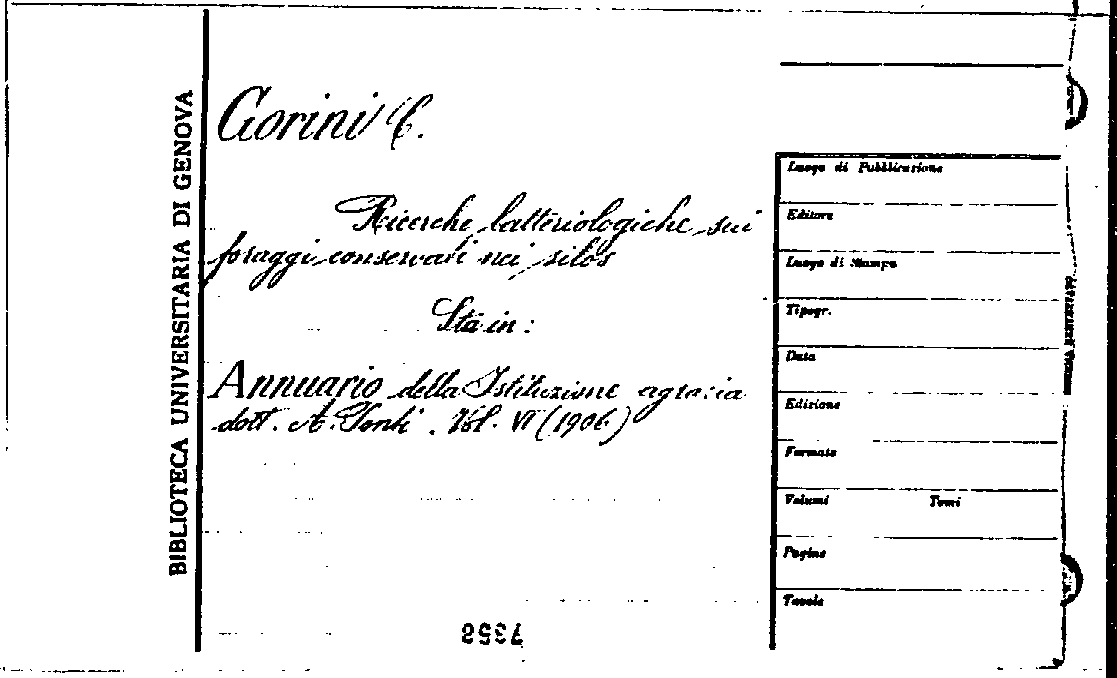 BIBLIOTECA UNIVERSITARIA DI GENOVA
Gorini C.
Ricerche batteriologiche sui
foraggi conservati nei silos
Stà in:
Annuario della Istituzione agraria
dott. A. Ponti. Vol. VI (1906)
7358
Luogo di Pubblicazione
Editore
Luogo di Stampa
Tipogr.
Data
Edizione
Formato
Volumi Tomi
Pagine
Tavole